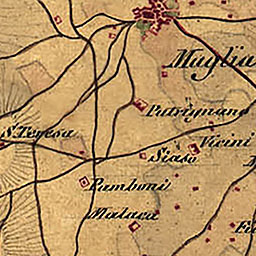 Muglia
Putrignano
S. Teresa
Vicini
Siaso
Pamboni
Malaca